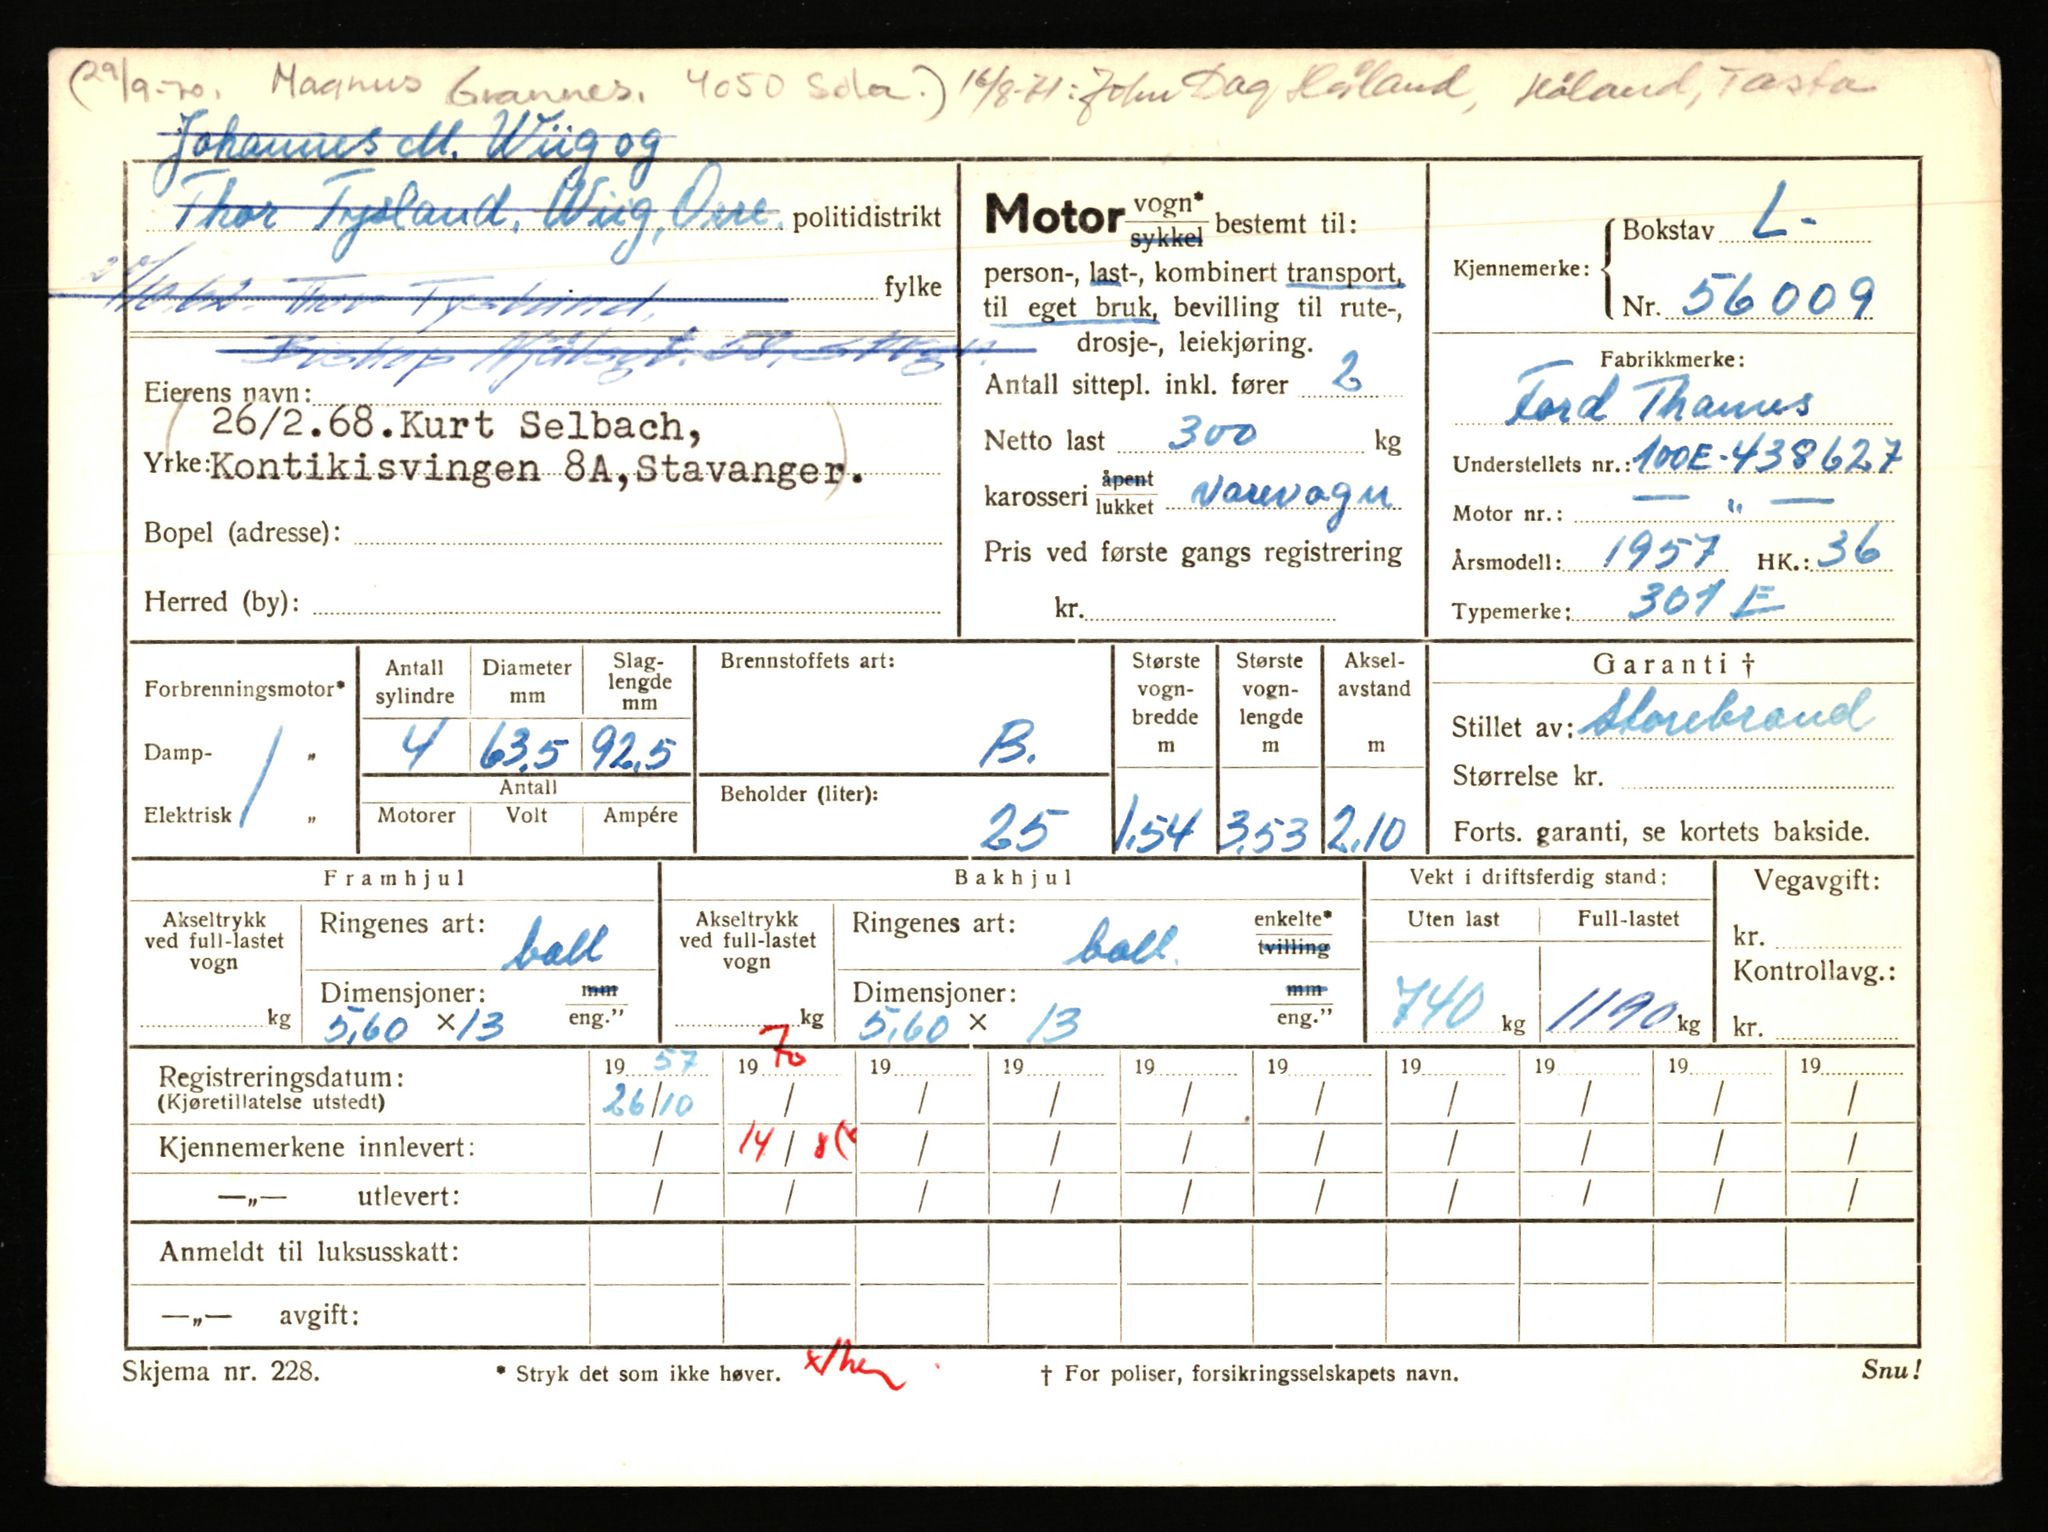 (29/9-70. Magnus Grannes. 4050 Sola.) 16/8-71: John Dag Håland, Håland, Tasta
Johannes M. Wiig og
Thor Tysland, Wiig, Orre. politidistrikt
Thor Tysland, fylke
Biskop Njålsgt. 58, Stvgr.
Eierens navn:
(26/2.68. Kurt Selbach,
Yrke: Kontikisvingen 8A, Stavanger.)
Bopel (adresse):
Herred (by):
Motor vogn* sykkel bestemt til:
person-, last-, kombinert transport,
til eget bruk, bevilling til rute-,
drosje-, leiekjøring.
Antall sittepl. inkl. fører 2
Netto last 300 kg
karosseri åpent lukket varevogn
Pris ved første gangs registrering
kr.
Kjennemerke: Bokstav L-
Nr. 56009
Fabrikkmerke:
Ford Thames
Understellets nr.: 100E-438627
Motor nr.: — „ —
Årsmodell: 1957 HK.: 36
Typemerke: 301 E
Forbrenningsmotor*
Damp- „
Elektrisk „
Antall sylindre Diameter mm Slag-lengde mm
4 63,5 92,5
Antall
Motorer Volt Ampére
Brennstoffets art:
B.
Beholder (liter):
25
Største vogn-bredde m Største vogn-lengde m Aksel-avstand m
1,54 3,53 2,10
Garanti †
Stillet av: Storebrand
Størrelse kr.
Forts. garanti, se kortets bakside.
Framhjul
Akseltrykk ved full-lastet vogn
kg
Ringenes art: ball
Dimensjoner: mm eng."
5,60 × 13
Bakhjul
Akseltrykk ved full-lastet vogn
kg
Ringenes art: ball. enkelte* tvilling
Dimensjoner: mm eng."
5,60 × 13
Vekt i driftsferdig stand:
Uten last Full-lastet
740 kg 1190 kg
Vegavgift:
kr.
Kontrollavg.:
kr.
19 57 19 70 19 19 19 19 19 19 19 19
Registreringsdatum: 26/10 / / / / / / / / /
(Kjøretillatelse utstedt)
Kjennemerkene innlevert: / 14/8 (x / / / / / / / /
—„— utlevert: / / / / / / / / / /
Anmeldt til luksusskatt:
—„— avgift:
Skjema nr. 228. * Stryk det som ikke høver. † For poliser, forsikringsselskapets navn. Snu!